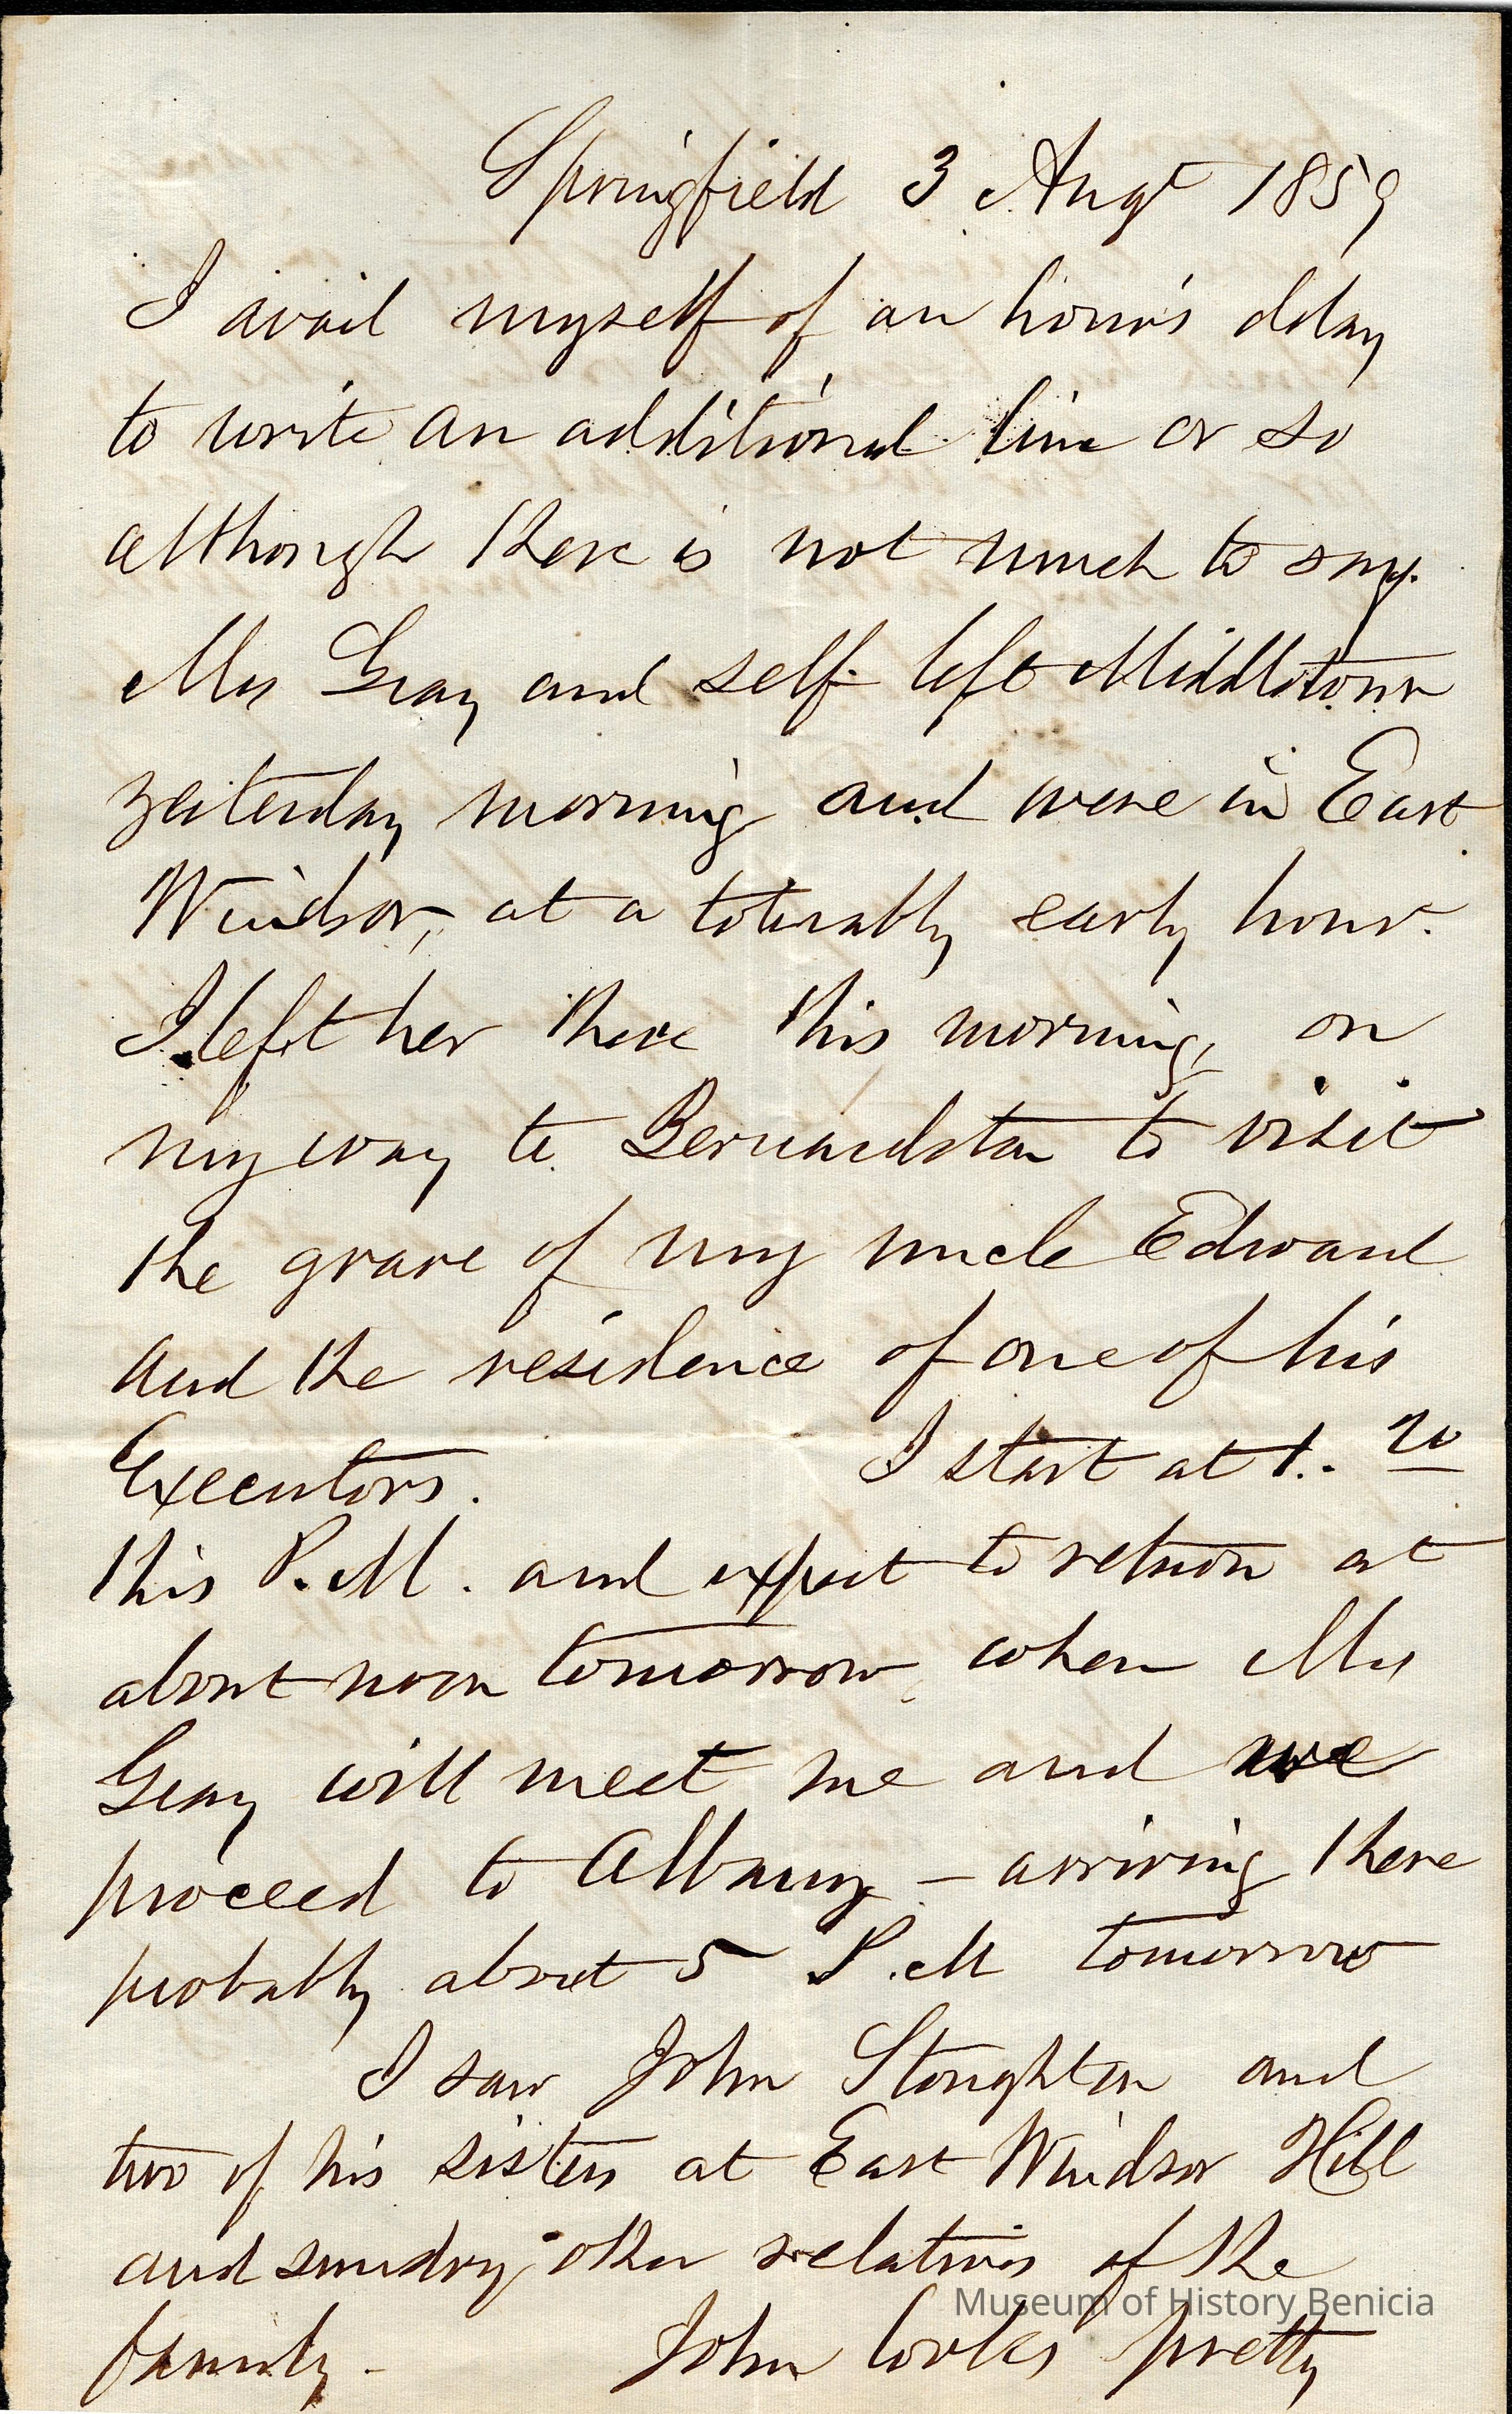 Springfield 3 Augt 1859
I avail myself of an hour's delay
to write an additional line or so
although there is not much to say.
Mrs Gray and self left Middletown
yesterday morning and were in East
Windsor, at a tolerably early hour.
I left her there this morning, on
my way to Bernardston to visit
the grave of my uncle Edward
and the residence of one of his
Executors. I start at 1.. 20
this P.M. and expect to return at
about noon tomorrow, when Mrs
Gray will meet me and we
proceed to Albany – arriving there
probably about 5 P.M tomorrow
I saw John Stoughton and
two of his sisters at East Windsor Hill
and sundry other relatives of the
Museum of History Benicia
family – John looks pretty